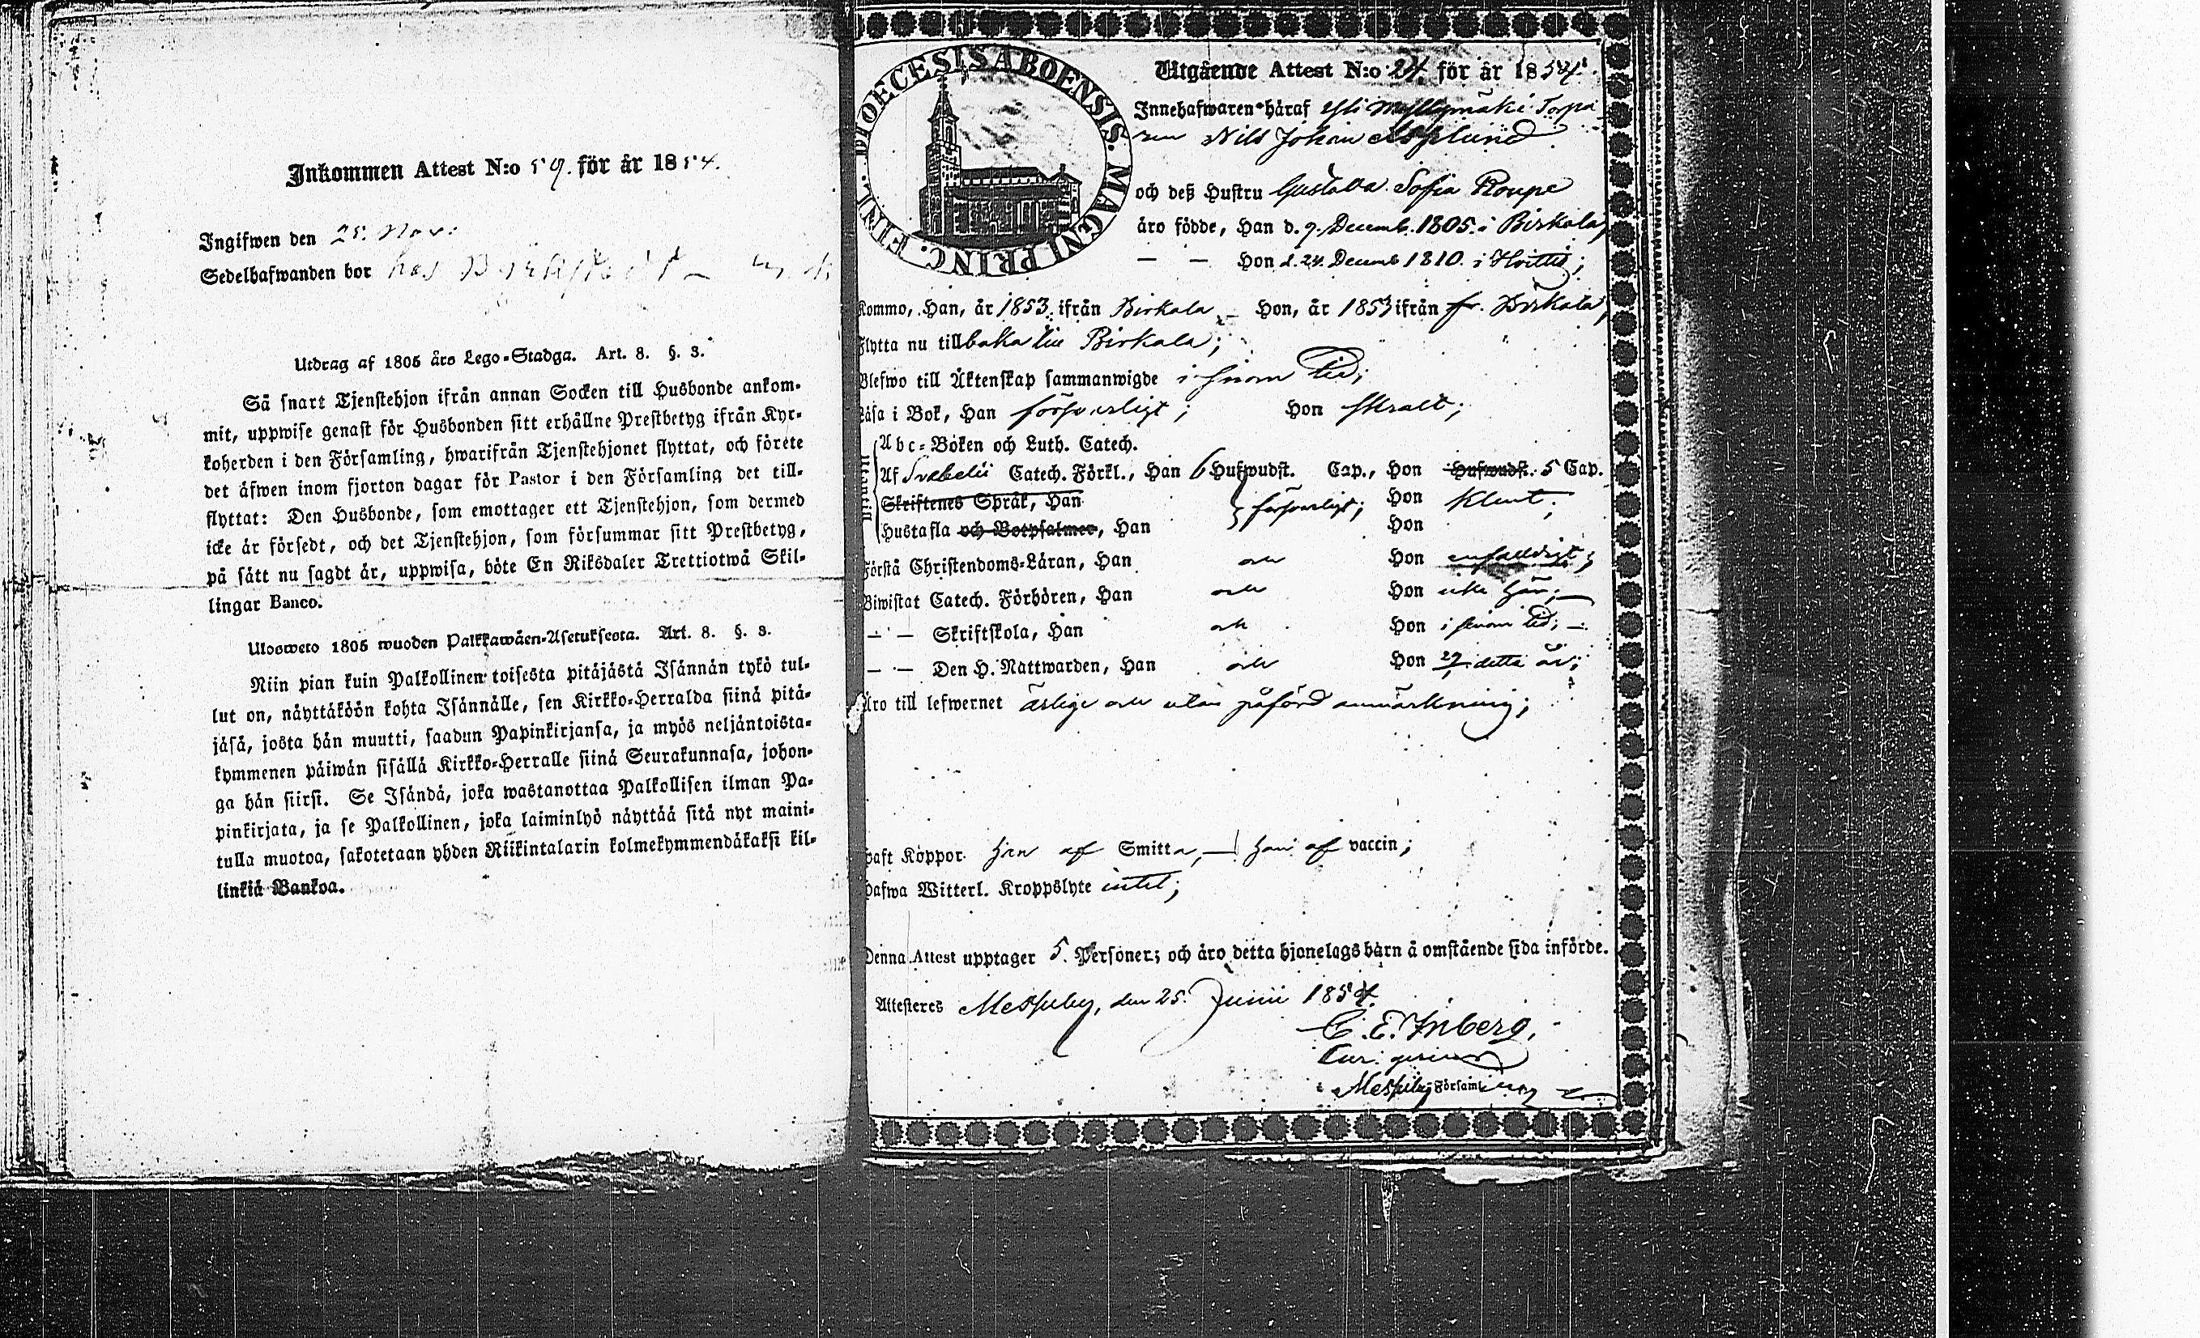 Inkommen Attest N:o 59. för år 1854.
Ingifwen den 25. Nov.
Sedelhafwanden bor hos
Utdrag af 1805 års Lego-Stadga. Art. 8. §. 3.
Så snart Tjenstehjon ifrån annan Socken till Husbonde ankom-
mit, uppwise genast för Husbonden sitt erhållne Prestbetyg ifrån Kyr-
koherden i den Församling, hwarifrån Tjenstehjonet flyttat, och förete
det äfwen inom fjorton dagar för Pastor i den Församling det till-
flyttat: Den Husbonde, som emottager ett Tjenstehjon, som dermed
icke är försedt, och det Tjenstehjon, som försummar sitt Prestbetyg,
på sätt nu sagdt är, uppwisa, böte En Riksdaler Trettiotwå Skil-
lingar Banco.
Ulosweto 1805 wuoden Palkkawäen-Asetuksesta. Art. 8. §. 3.
Niin pian kuin Palkollinen toisesta pitäjästä Isännän tykö tul-
lut on, näyttäköön kohta Isännälle, sen Kirkko-Herralda siinä pitä-
jäsä, josta hän muutti, saadun Papinkirjansa, ja myös neljäntoista-
kymmenen päiwän sisällä Kirkko-Herralle siinä Seurakunnasa, johon-
ga hän siirsi. Se Isändä, joka wastanottaa Palkollisen ilman Pa-
pinkirjata, ja se Palkollinen, joka laiminlyö näyttää sitä nyt maini-
tulla muotoa, sakotetaan yhden Riikintalarin kolmekymmendäkaksi kil-
linkiä Bankoa.
DIOECESIS ABOENSIS. MAGNI PRINC. FINL.
Utgående Attest N:o 24. för år 1854.
Innehafwaren häraf Myllymäki
Nils Johan Asplund
och deß Hustru Gustava Sofia Roupe
äro födde, Han d. 9. Decemb. 1805. i Birkala,
— — Hon d. 24. Decemb 1810. i Hvittis;
Kommo, Han, år 1853. ifrån Birkala, Hon, år 1853 ifrån fr. Birkala,
Flytta nu tillbaka till Birkala;
Blefwo till Äktenskap sammanwigde i sinom tid;
Läsa i Bok, Han försvarligt; Hon skralt;
Abc-Boken och Luth. Catech.
Af Svebelii Catech. Förkl., Han 6 Hufwudst. Cap., Hon Hufwudst. 5 Cap.
Skriftenes Språk, Han försvarligt; Hon klent;
Hustafla och Botpsalmer, Han Hon
Förstå Christendoms-Läran, Han och Hon enfalldigt;
Biwistat Catech. Förhören, Han och Hon icke här;
— — Skriftskola, Han och Hon i sinom tid;
— — Den H. Nattwarden, Han och Hon detta år;
Äro till lefwernet ärlige och utan påförd anmärkning;
Haft Koppor Han af Smitta, — Hon af vaccin;
Hafwa Witterl. Kroppslyte intet;
Denna Attest upptager 5. Personer; och äro detta hjonelags barn å omstående sida införde.
Attesteres Messuby, den 25. Junii 1854.
C. E. Inberg,
i Messuby Församling